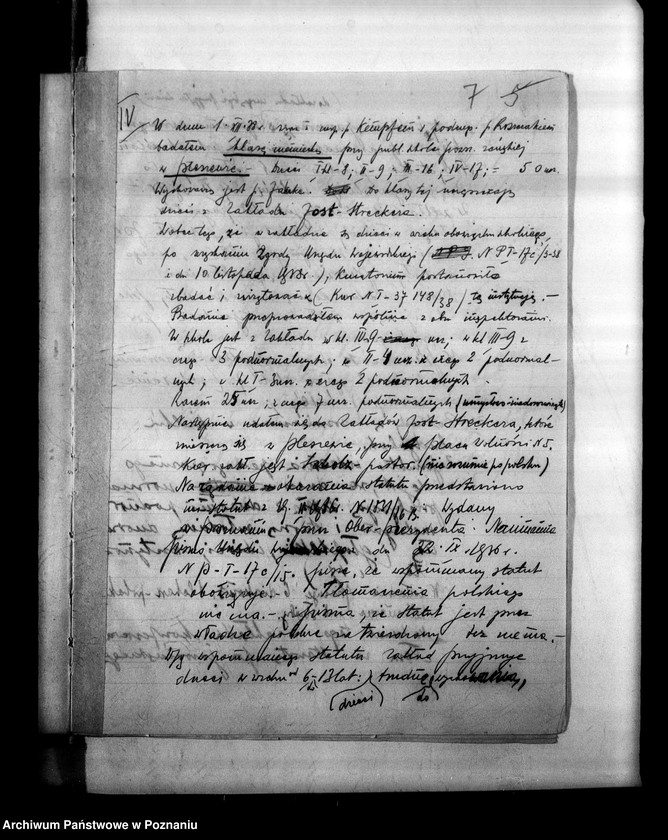 7 5
IV
W dniu 1. XII. 38 r. wraz z insp. p. Kempfem i podinsp. p. Rosmakiem
badałem klasę niemiecką przy publ. szkole powsz. żeńskiej
w Pleszewie - dzieci I kl - 8; II - 9; III - 16; IV - 17; = 50 ucz.
Wychowawcą jest p. Jahke. Do klasy tej uczęszczają
dzieci z Zakładu Jost-Streckera.
Wobec tego, że w zakładzie są dzieci w wieku obowiązku szkolnego,
po uzyskaniu zgody Urzędu Wojewódzkiego (N PT-17c/3-38
z dn. 10. listopada 1938 r.), Kuratorium postanowiło
zbadać i wizytować (Kur. N I-37148/38) tę instytucję. -
Badanie przeprowadziłem wspólnie z obu inspektorami.
W szkole jest z Zakładu w kl. IV-9 ucz; w kl III-9 z
czego 3 podnormalnych; w II-4 ucz. z czego 2 podnormal-
nych; w kl I-3 ucz. z czego 2 podnormalnych.
Razem 25 ucz; z czego 7 ucz. podnormalnych (umysłowo-niedorozwiniętych)
Następnie udałem się do Zakładów Jost-Streckera, które
mieszczą się w Pleszewie, przy placu Wolności N 5.
Kier. zakł. jest Scholz - pastor. (nie rozumie po polsku)
Na żądanie okazania statutu przedstawiono
wydany
w Poznaniu przez Ober-prezydenta.
pismo Urzędu Wojewódzkiego z dn. IX. 1936 r.
N P-I-17c/15. pisze, że wspomniany statut
obowiązuje. Tłomaczenia polskiego
nie ma. - Pisma, że statut jest przez
władze polskie zatwierdzony też nie ma. -
Wg wspomnianego statutu zakład przyjmuje
dzieci w wieku od 6-13 lat: trudne wychowawczo,
(dzieci) (do)
Archiwum Państwowe w Poznaniu